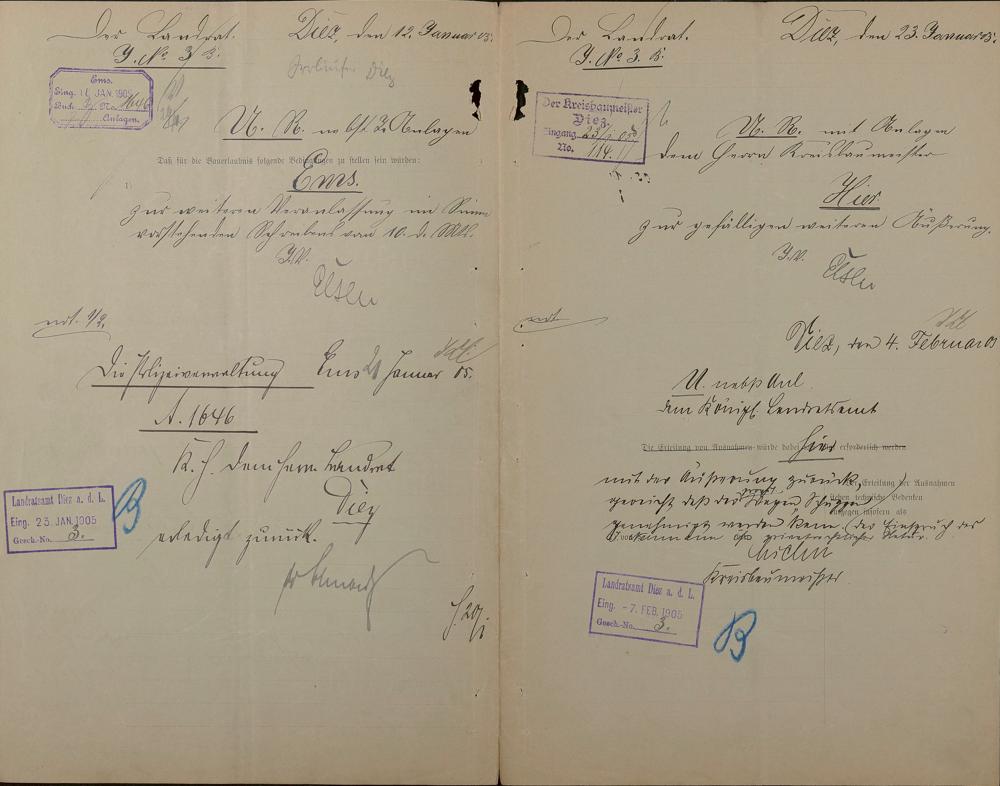 Der Landrat.
J. No 3 B.
Diez, den 12. Januar 05.
Ems.
Eing. 11 JAN. 1905
Buch No. 1646
Anlagen.
U. R. nebst 3 Anlagen
Daß für die Bauerlaubnis folgende Bedingungen zu stellen sein würden:
1)
Ems.
zur weiteren Veranlassung im Sinne
vorstehenden Schreibens vom 10. d. Mts.
J.V.
ndt. 1/2.
Die Polizeiverwaltung
Ems 21 Januar 05.
A. 1646
K. H. dem Herrn Landrat
Diez
Landratsamt Diez a. d. L.
Eing. 23. JAN. 1905
Gesch.-No. 3.
B
erledigt zurück.
Der Landrat.
J. No 3. B.
Diez, den 23. Januar 05.
Der Kreisbaumeister
Diez.
Eingang 23/1 05
No. 114.
U. R. mit Anlagen
dem Herrn Kreisbaumeister
Hier
zur gefälligen weiteren Äußerung.
J.V.
ndt.
Diez, den 4. Februar 05
U. nebst Anl.
dem Königl. Landratsamt
Die Erteilung von Ausnahmen würde dabei erforderlich werden
hier
mit der Äußerung zurück,
Erteilung der Ausnahmen
daß der Schuppen
lichen technische Bedenken
gegen insofern als
genehmigt werden kann. (der Einspruch des
privatrechtlicher Natur.
Kreisbaumeister
Landratsamt Diez a. d. L.
Eing. - 7. FEB. 1905
Gesch.-No. 3.
B